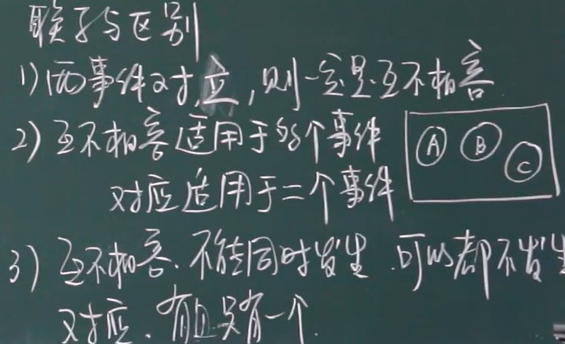 联系与区别
1) 两事件对立,则一定是互不相容
2) 互不相容适用于多个事件
对应适用于二个事件
A B C
3) 互不相容、不能同时发生、可以都不发生
对应、有且只有一个.